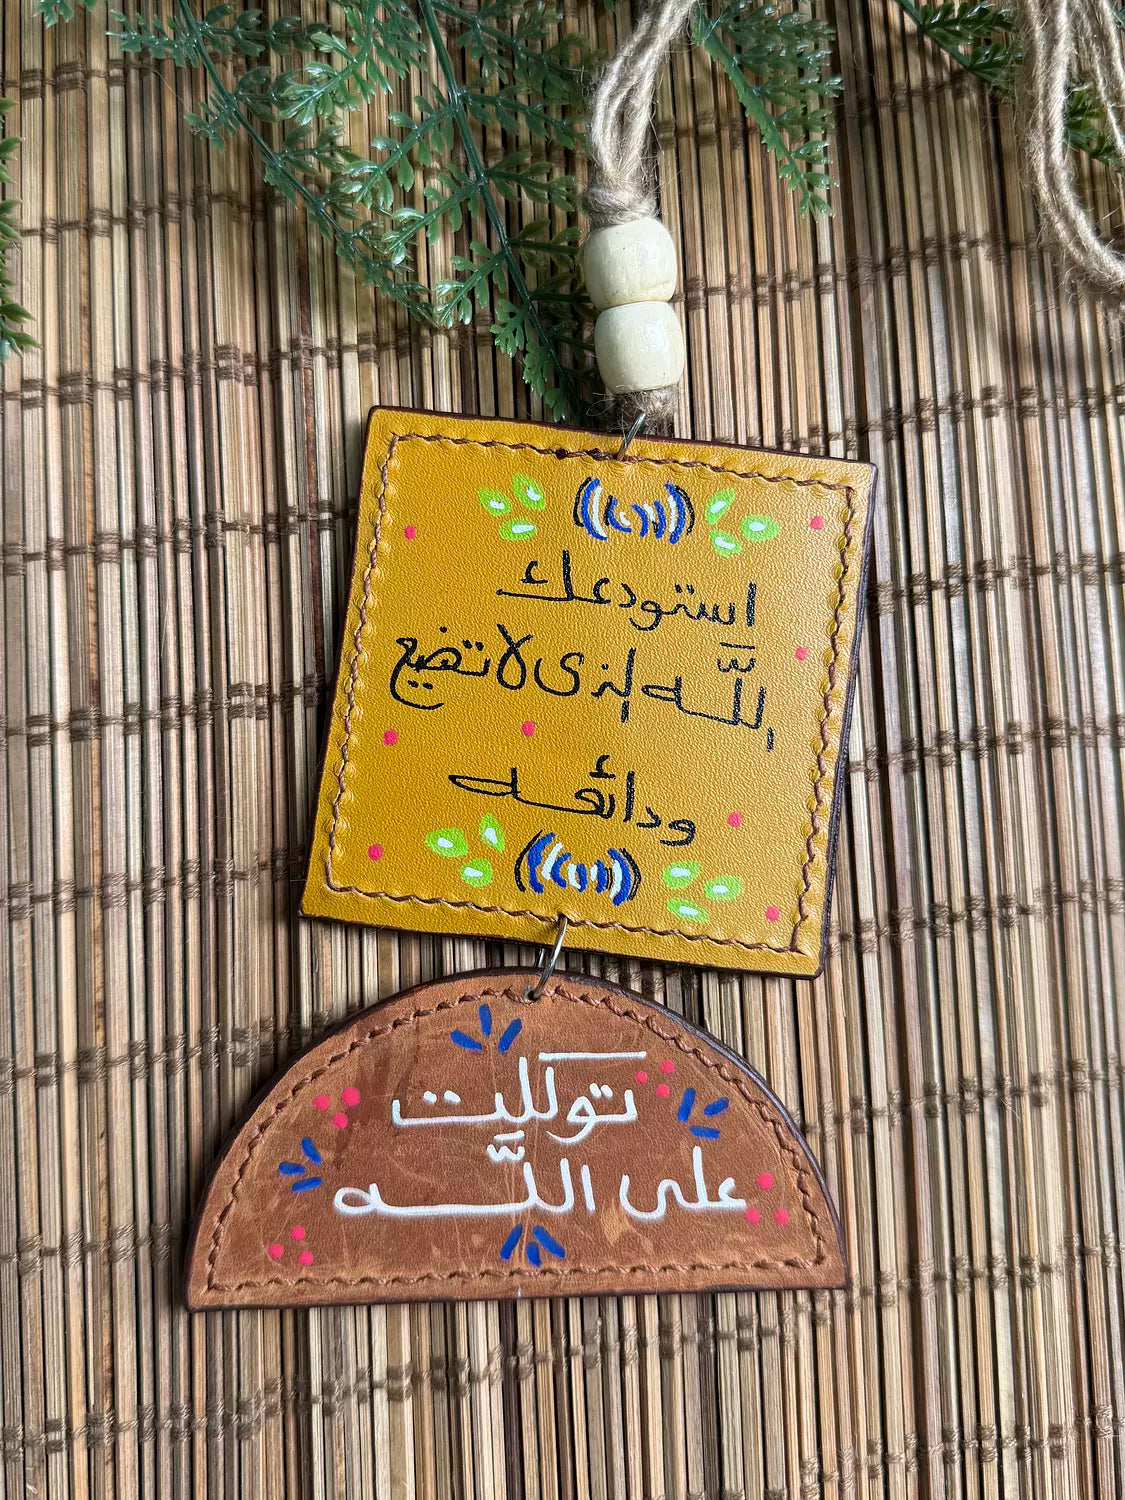 استودعك
اللّه الذى لا تضيع
ودائعه
توكلت
على اللّه